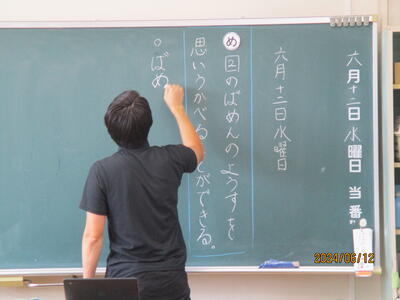 六月十二日水曜日 当番
六月十二日水曜日
め ②のばめんのようすを
思いうかべることができる。
○ばめ
2024/06/12